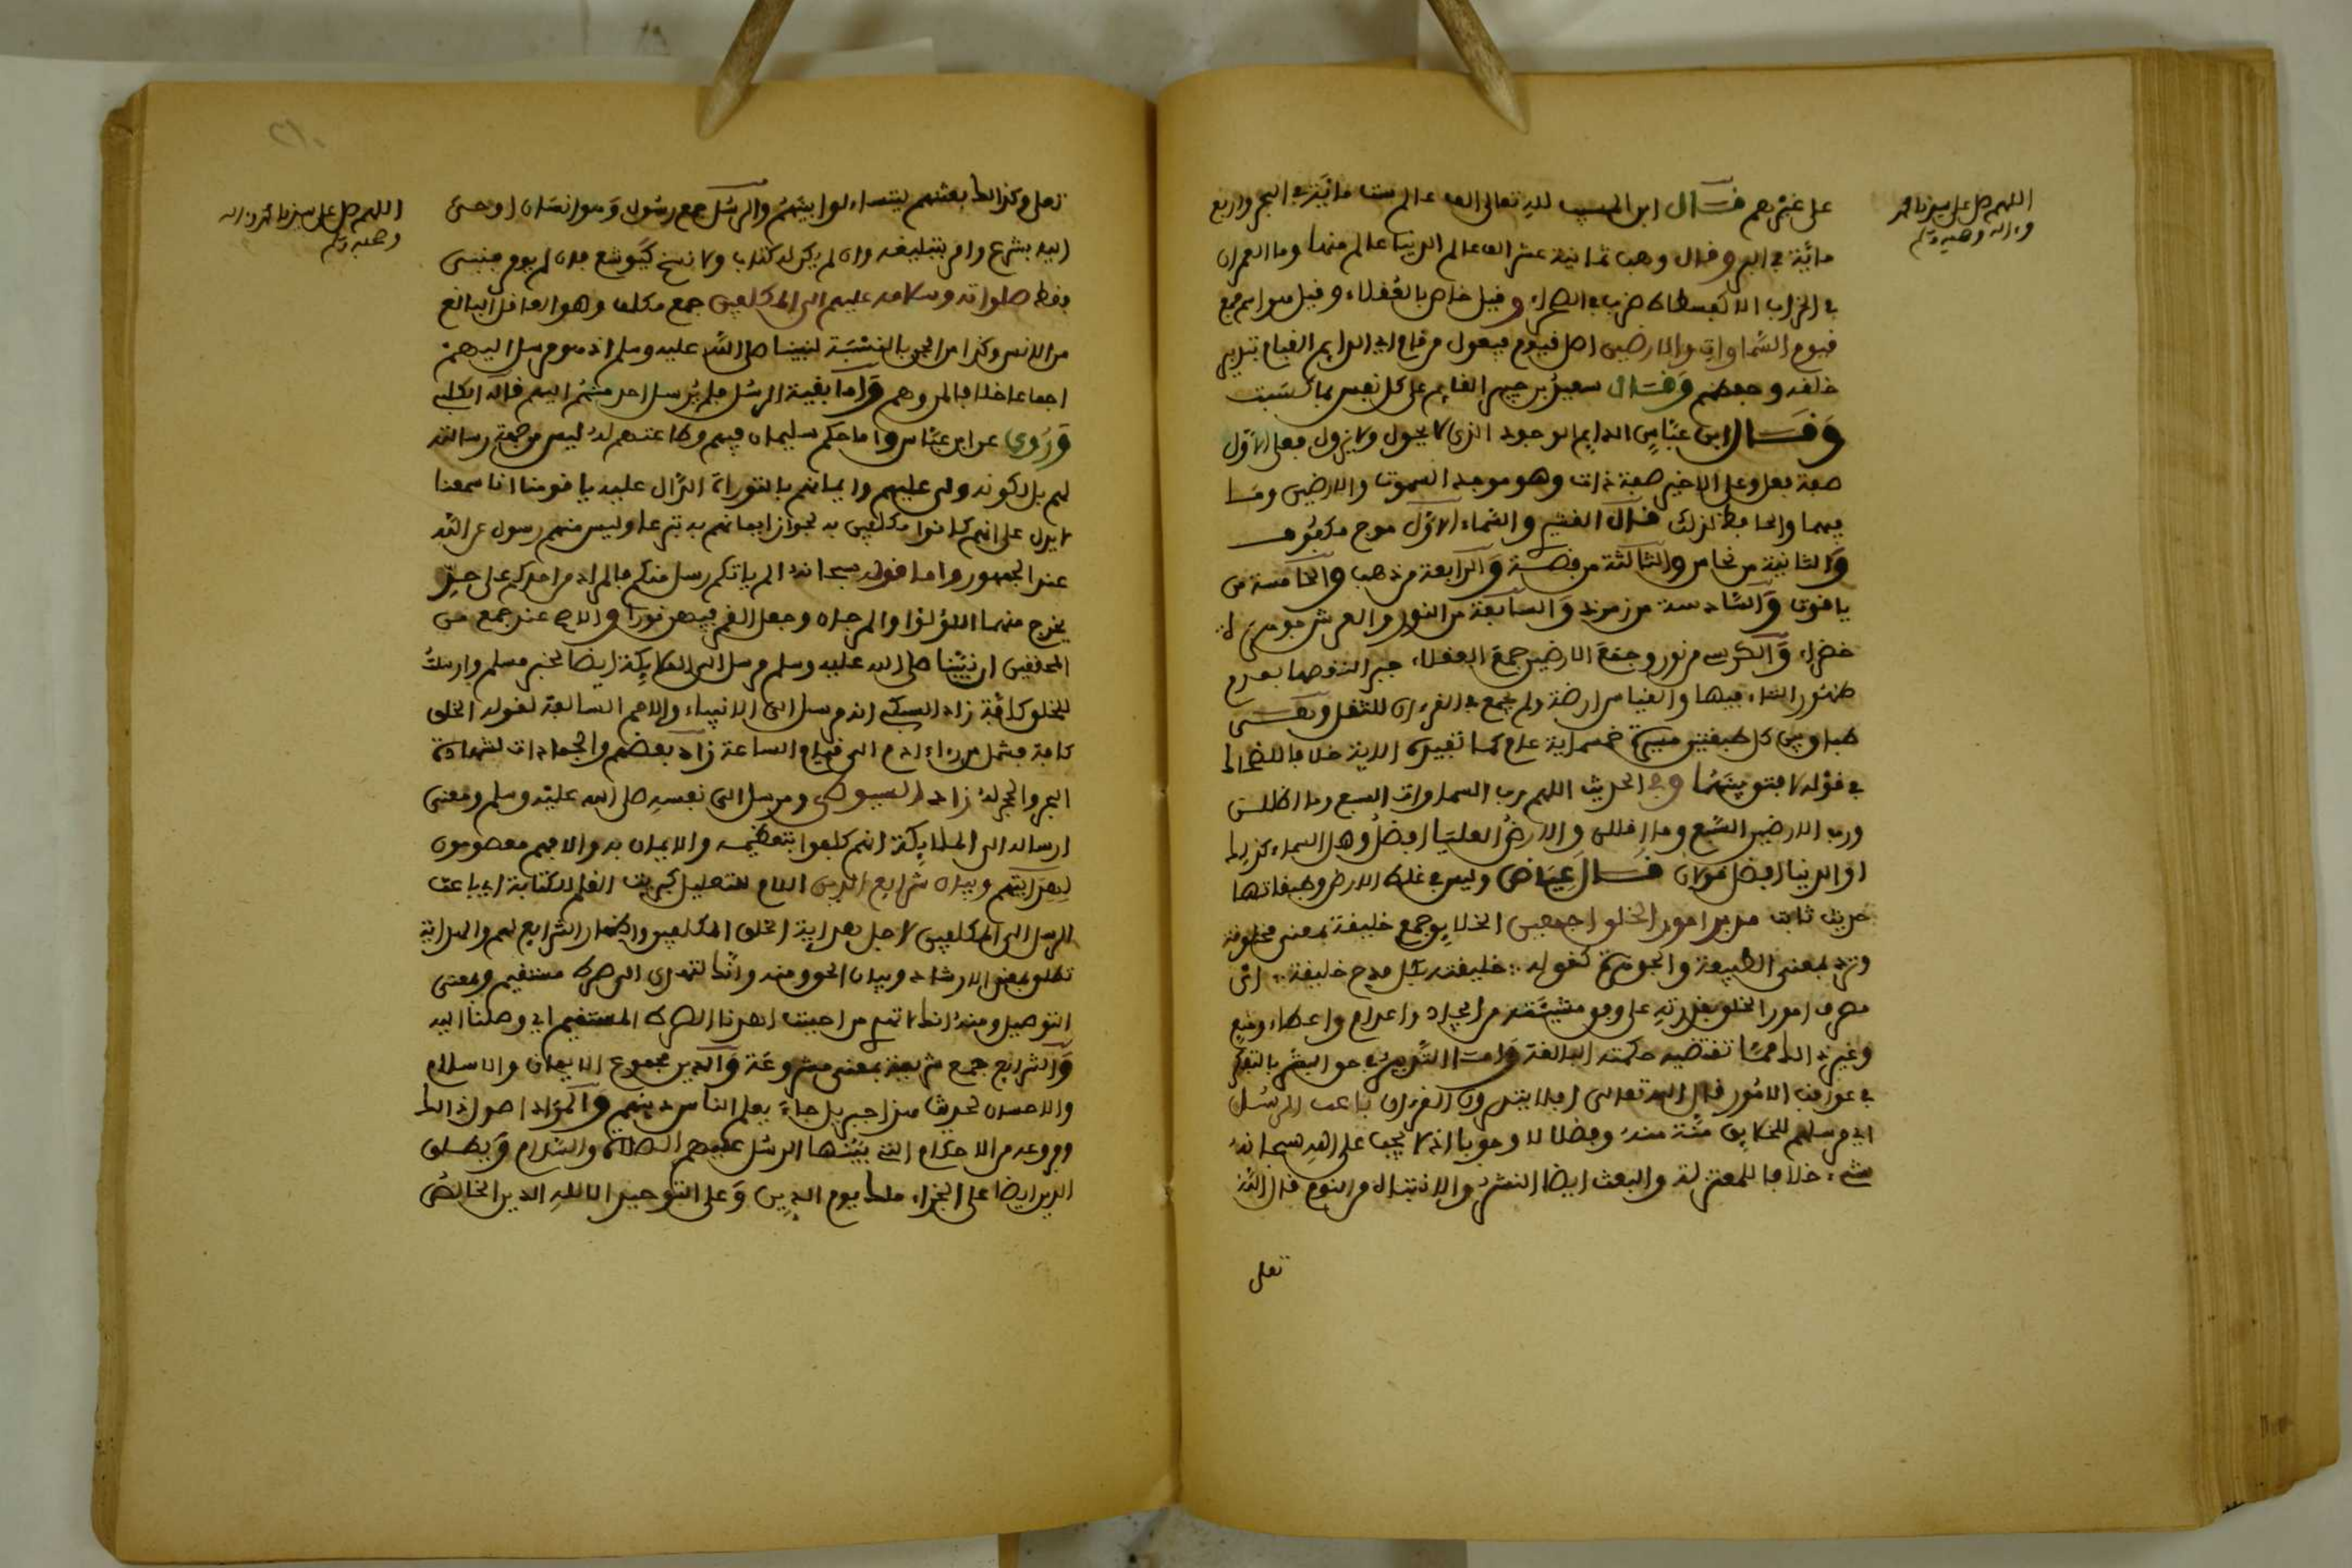 اللهم صل على سيدنا محمد
وءاله وصحبه وسلم
على غيرهم فقال ابن المسيب لله تعالى الف عالم ست مائة في البحر واربع
مائة في البر وقال وهب ثمانية عشر الف عالم الدنيا عالم منها وما العمران
في الخراب الا كفسطاط ضرب في الصحراء وقيل خاص بالعقلاء وقيل هو اسم جمع
قيوم السماوات والارضين اصل قيوم فيعول من قام اي الدايم القيام بتدبير
خلقه وحفظهم وقال سعيد بن جبير القايم على كل نفس بما كسبت
وقال ابن عباس الدايم الوجود الذي لا يحول ولا يزول فعلى الاول
صفة فعل وعلى الاخير صفة ذات وهو موجد السموات والارضين وما
فيهما والحافظ لذلك قال القشيري والسماء الاولى موج مكفوف
والثانية من نحاس والثالثة من فضة والرابعة من ذهب والخامسة من
ياقوت والسادسة من زمرد والسابعة من النور والعرش جوهرة
خضراء والكرسي من نور وجمع الارضين جمع العقلاء جبر النقصها بعدم
ظهور التاء فيها والقياس ارضة ولم يجمع في القرءان للثقل وهي
طباق بين كل طبقتين مسيرة خمسماية عام كما تفيده الاية خلافا للضحاك
في قوله لا فتق بينهما وفي الحديث اللهم رب السماوات السبع وما اظللن
ورب الارضين السبع وما اقللن والارض العليا افضل وهل السماء كذلك
او الدنيا افضل قولان قال عياض وليس في غلظ الارض وطبقاتها
حديث ثابت مدبر امور الخلق اجمعين الخلايق جمع خليقة بمعنى مخلوقة
وترد بمعنى الطبيعة والجبلة كقوله خليقته بكل مدح خليقة اي
مصرف امور الخلق بقدرته على وفق مشيئته من ايجاد واعدام واعطاء ومنع
وغير ذلك مما تقتضيه حكمته البالغة واما التدبير في حق البشر بالتفكر
في عواقب الامور قال الله تعالى افلا يتدبرون القرءان باعث الرسل
اي مرسلهم للخلايق منة منه وفضلا لا وجوبا اذ لا يجب على الله سبحانه
شيء خلافا للمعتزلة والبعث ايضا النشر والانتباه من النوم قال الله
تعلى
اللهم صل على سيدنا محمد وءاله
وصحبه وسلم
تعلى وكذلك بعثنهم ليتساءلوا بينهم والرسل جمع رسول وهو انسان اوحي
اليه بشرع وامر بتبليغه وان لم يكن له كتاب ولا نسخ كيوشع فان لم يومر فنبي
فقط صلواته وسلامه عليهم الى المكلفين جمع مكلف وهو العاقل البالغ
من الانس وكذا من الجن بالنسبة لنبينا صلى الله عليه وسلم اذ هو مرسل اليهم
اجماعا خلافا لمن وهم واما بقية الرسل فلم يرسل احد منهم اليهم قاله الكلبي
وروي عن ابن عباس واما حكم سليمان فيهم وطاعتهم له ليس من جهة رسالته
لهم بل لكونه ولي عليهم وايمانهم بالتوراة الدال عليه يا قومنا انا سمعنا
لا يدل على انهم كانوا مكلفين به لجواز ايمانهم به تبرعا وليس منهم رسول عن الله
عند الجمهور واما قوله سبحانه الم ياتكم رسل منكم فالمراد من احدكم على حد
يخرج منهما اللؤلؤ والمرجان وجعل القمر فيهن نورا والاصح عند جمع من
المحققين ان نبينا صلى الله عليه وسلم مرسل الى الملايكة ايضا لخبر مسلم وارسلت
للخلق كافة زاد السبكي انه مرسل الى الانبياء والامم السالفة لقوله الخلق
كافة فشمل من لدن ءادم الى قيام الساعة زاد بعضهم والجمادات لشهادة
الشجر والحجر له زاد السيوطي ومرسل الى نفسه صلى الله عليه وسلم ومعنى
ارساله الى الملايكة انهم كلفوا بتعظيمه والايمان به والا فهم معصومون
لهدايتهم وبيان شرايع الدين اللام للتعليل كبريت القلم للكتابة اي باعث
الرسل الى المكلفين لاجل هداية الخلق المكلفين واظهار الشرايع لهم والهداية
تطلق بمعنى الارشاد وبيان الحق ومنه وانك لتهدي الى صراط مستقيم وبمعنى
التوصيل ومنه انك لا تهدي من احببت اهدنا الصراط المستقيم اي وصلنا اليه
والشرايع جمع شريعة بمعنى مشروعة والدين مجموع الايمان والاسلام
والاحسان لحديث هذا جبريل جاء يعلم الناس دينهم والمراد اصول ذلك
وفروعه من الاحكام التي بينها الرسل عليهم الصلاة والسلام ويطلق
الدين ايضا على الجزاء ملك يوم الدين وعلى التوحيد الا لله الدين الخالص